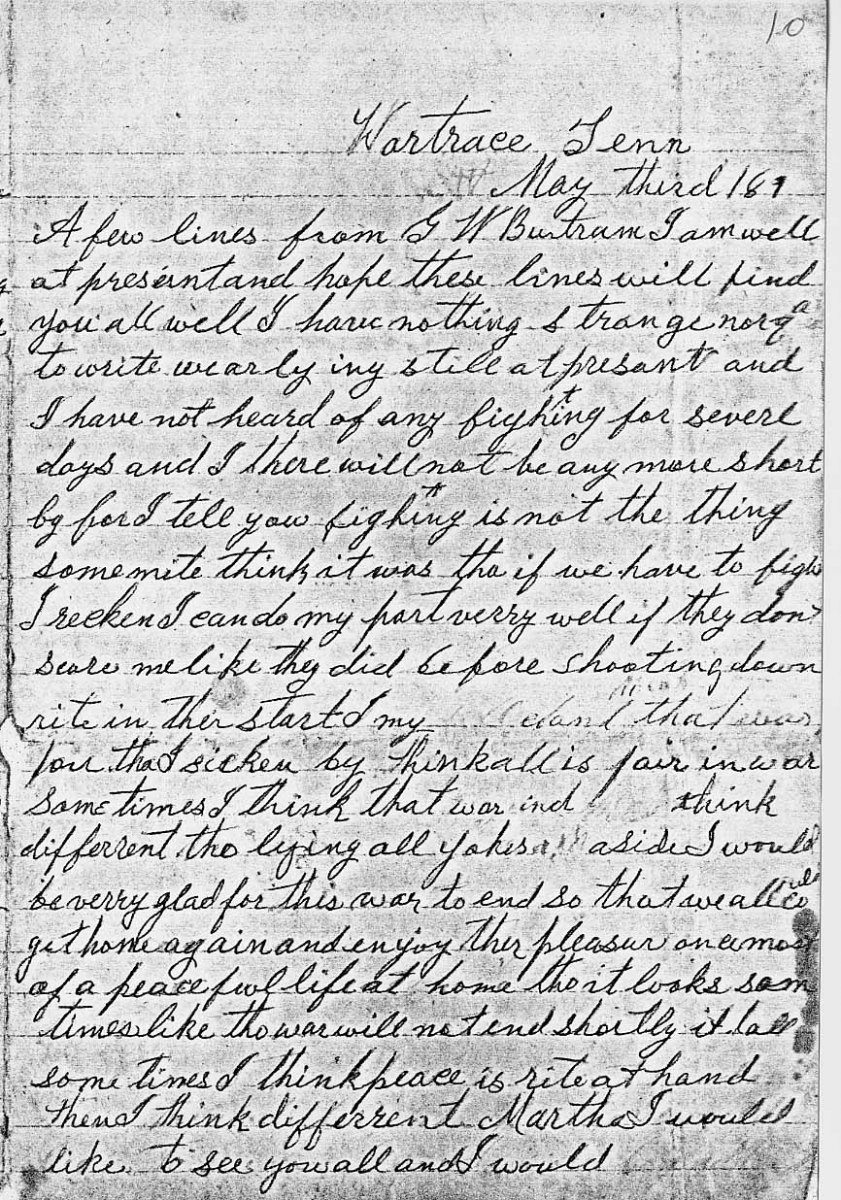 10
Wartrace Tenn
May third 181
A few lines from G W Bustram I am well
at presentand hope these lines will find
you all well I have nothing strange nor
to write we ar ly ing still at presant and
I have not heard of any fighting for severl
days and I there will not be any more short
by for I tell you fighting is not the thing
some mite think it was tho if we have to figh
I recken I can do my part verry well if they don
scare me like they did before shooting down
rite in ther start I my that was
for tho I sicken by think all is fair in war
Some times I think that war ind think
differrent tho lying all yokes aside I would
be verry glad for this war to end so that we all
get home again and enjoy ther pleasur once most
of a peace fwl life at home tho it looks som
times like tho war will not end shortly it tall
some times I think peace is rite at hand
then I think differrent Martha I would
like to see you all and I would